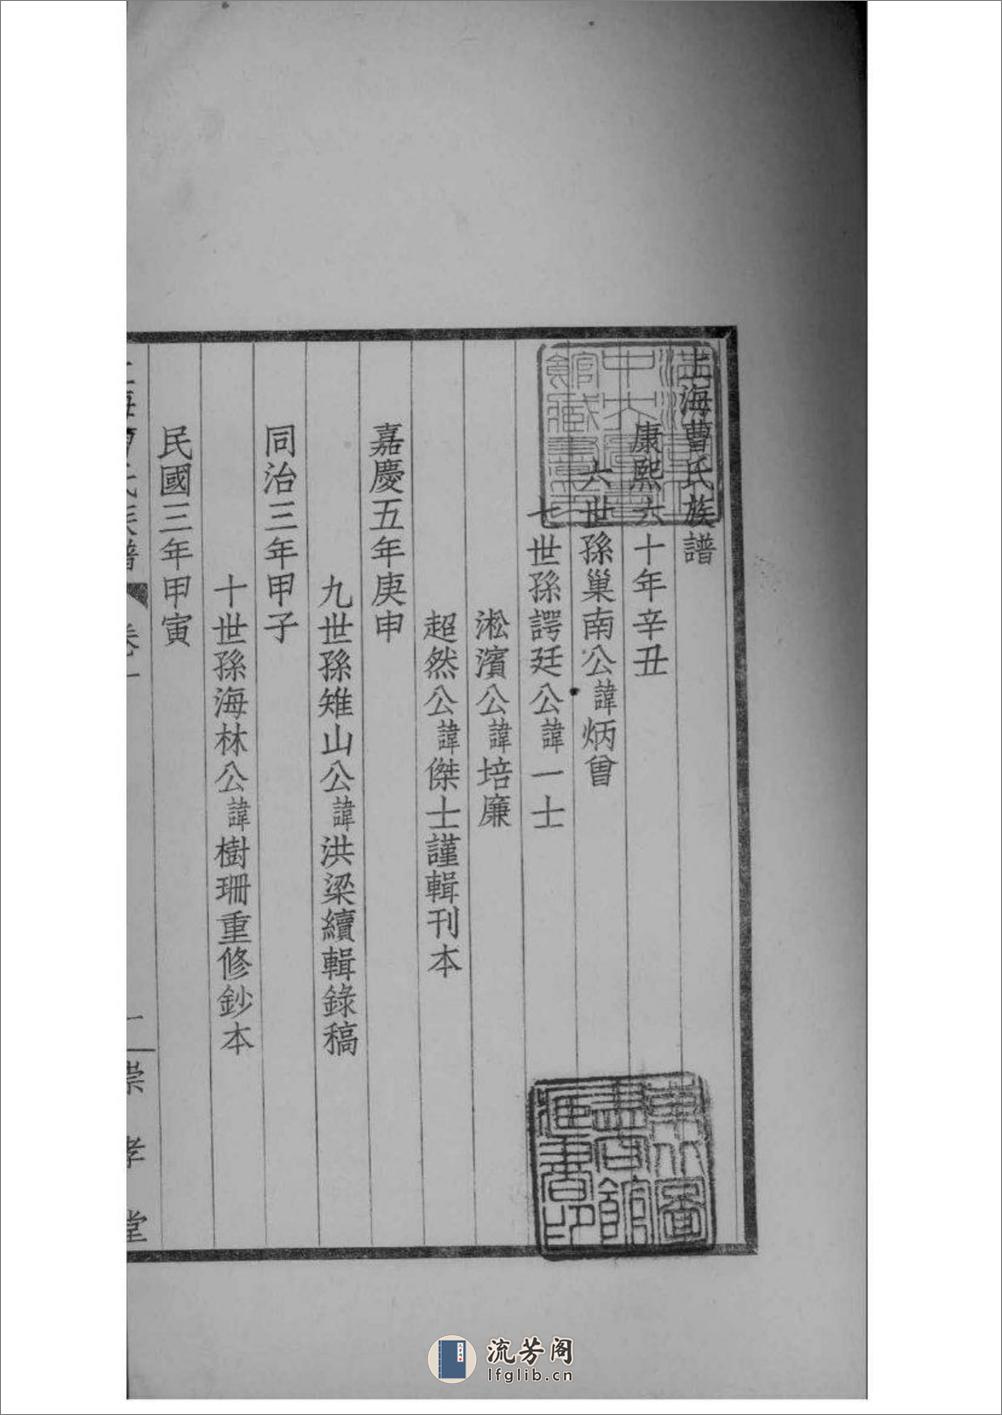 上海曹氏族譜
康熙六十年辛丑
六世孫巢南公諱炳曾
七世孫諤廷公諱一士
淞濱公諱培廉
超然公諱傑士謹輯刊本
嘉慶五年庚申
九世孫雉山公諱洪梁續輯錄稿
同治三年甲子
十世孫海林公諱樹珊重修鈔本
民國三年甲寅
上海曹氏族譜
卷一
一
崇孝堂
圖書館藏書印
流芳阁
lfglib.cn